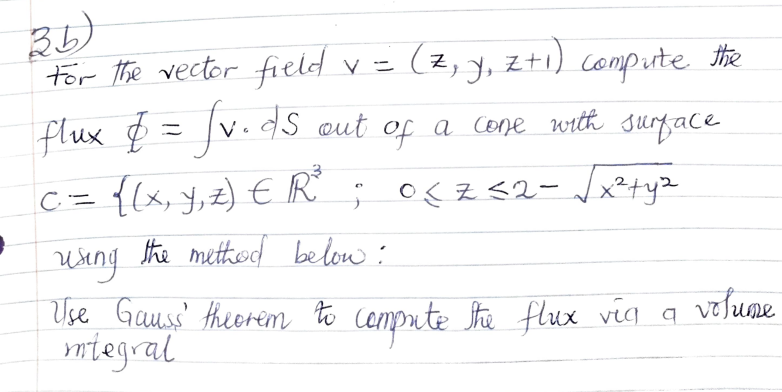 3b)
For the vector field v = (z, y, z+1) compute the
flux Φ = ∫v.dS out of a cone with surface
C = {(x, y, z) ∈ ℝ³ ; 0 ≤ z ≤ 2 - √x²+y²
using the method below :
Use Gauss' theorem to compute the flux via a volume
integral